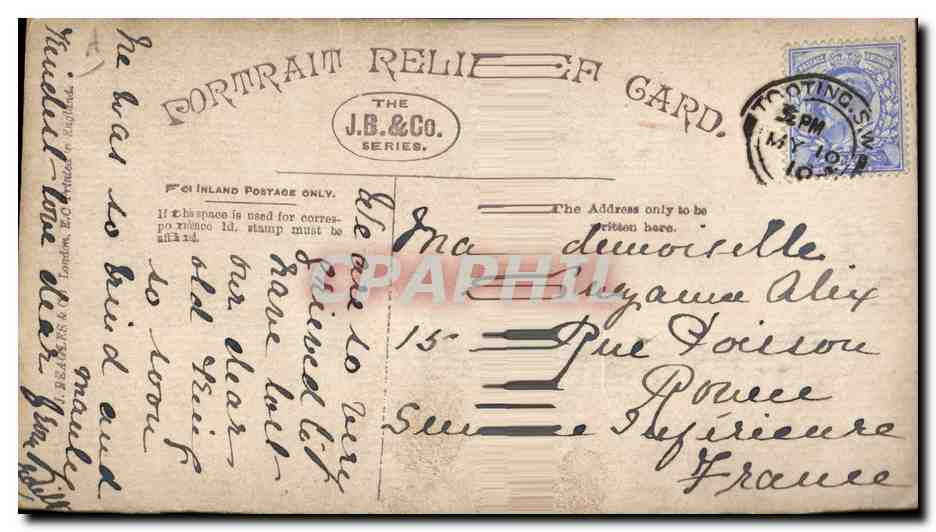 PORTRAIT RELIEF CARD.
THE
J.B. & Co.
SERIES.
TOOTING. S.W.
PM
MY 10
10
FOR INLAND POSTAGE ONLY.
If this space is used for corres-
pondence 1d. stamp must be
affixed.
The Address only to be
written here.
Mademoiselle
Suzanne Alix
15 Rue Poisson
Rouen
Seine Inférieure
France
We are so very
grieved to
have lost
our dear
old King
so soon
He was so kind and
Kindest love dear
J. BEAGLES & Co. London, E.C. Printed in England.
CPARAMA